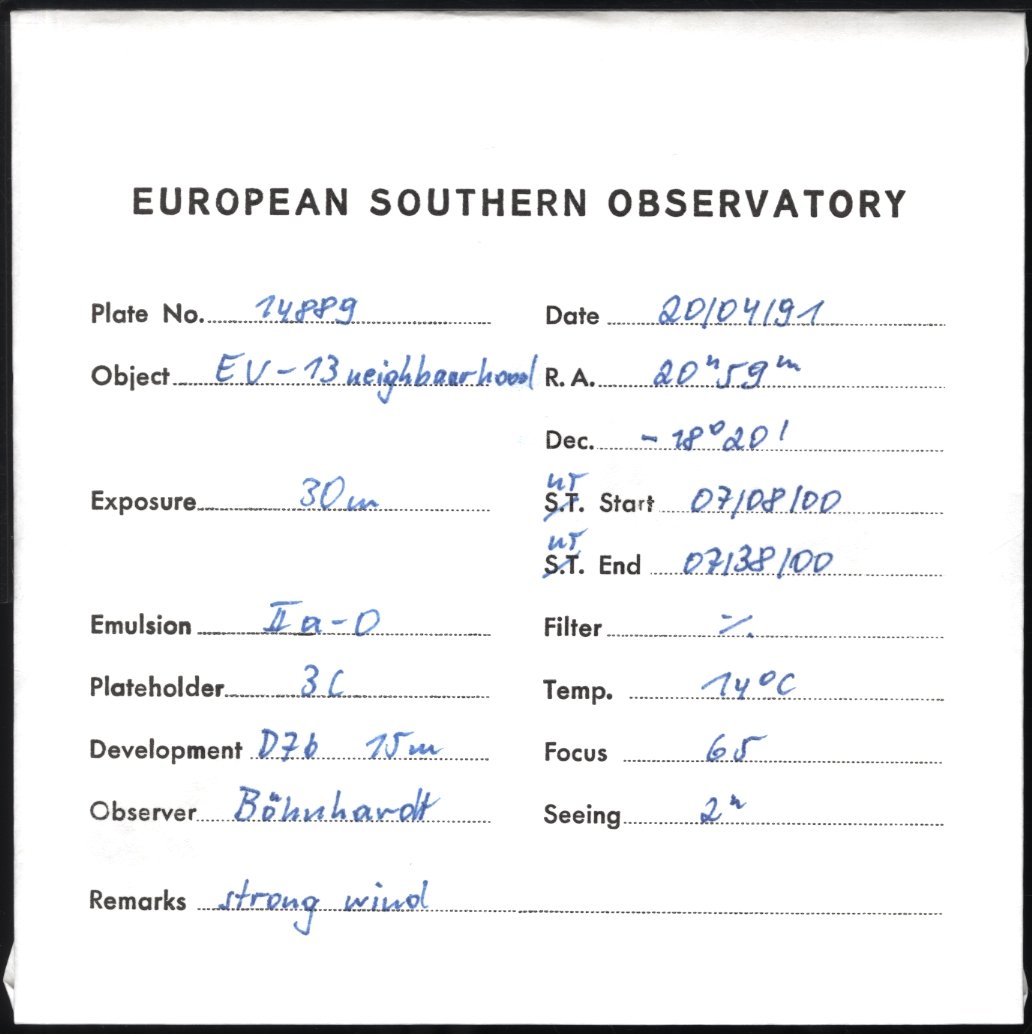 EUROPEAN SOUTHERN OBSERVATORY
Plate No. 14889 Date 20/04/91
Object EV-13 neighbaurhood R. A. 20h 59m
Dec. - 18° 20'
Exposure 30m UT S.T. Start 07/08/00
UT S.T. End 07/38/00
Emulsion IIa-O Filter ·/.
Plateholder 3C Temp. 14°C
Development D76 15m Focus 65
Observer Böhnhardt Seeing 2"
Remarks strong wind